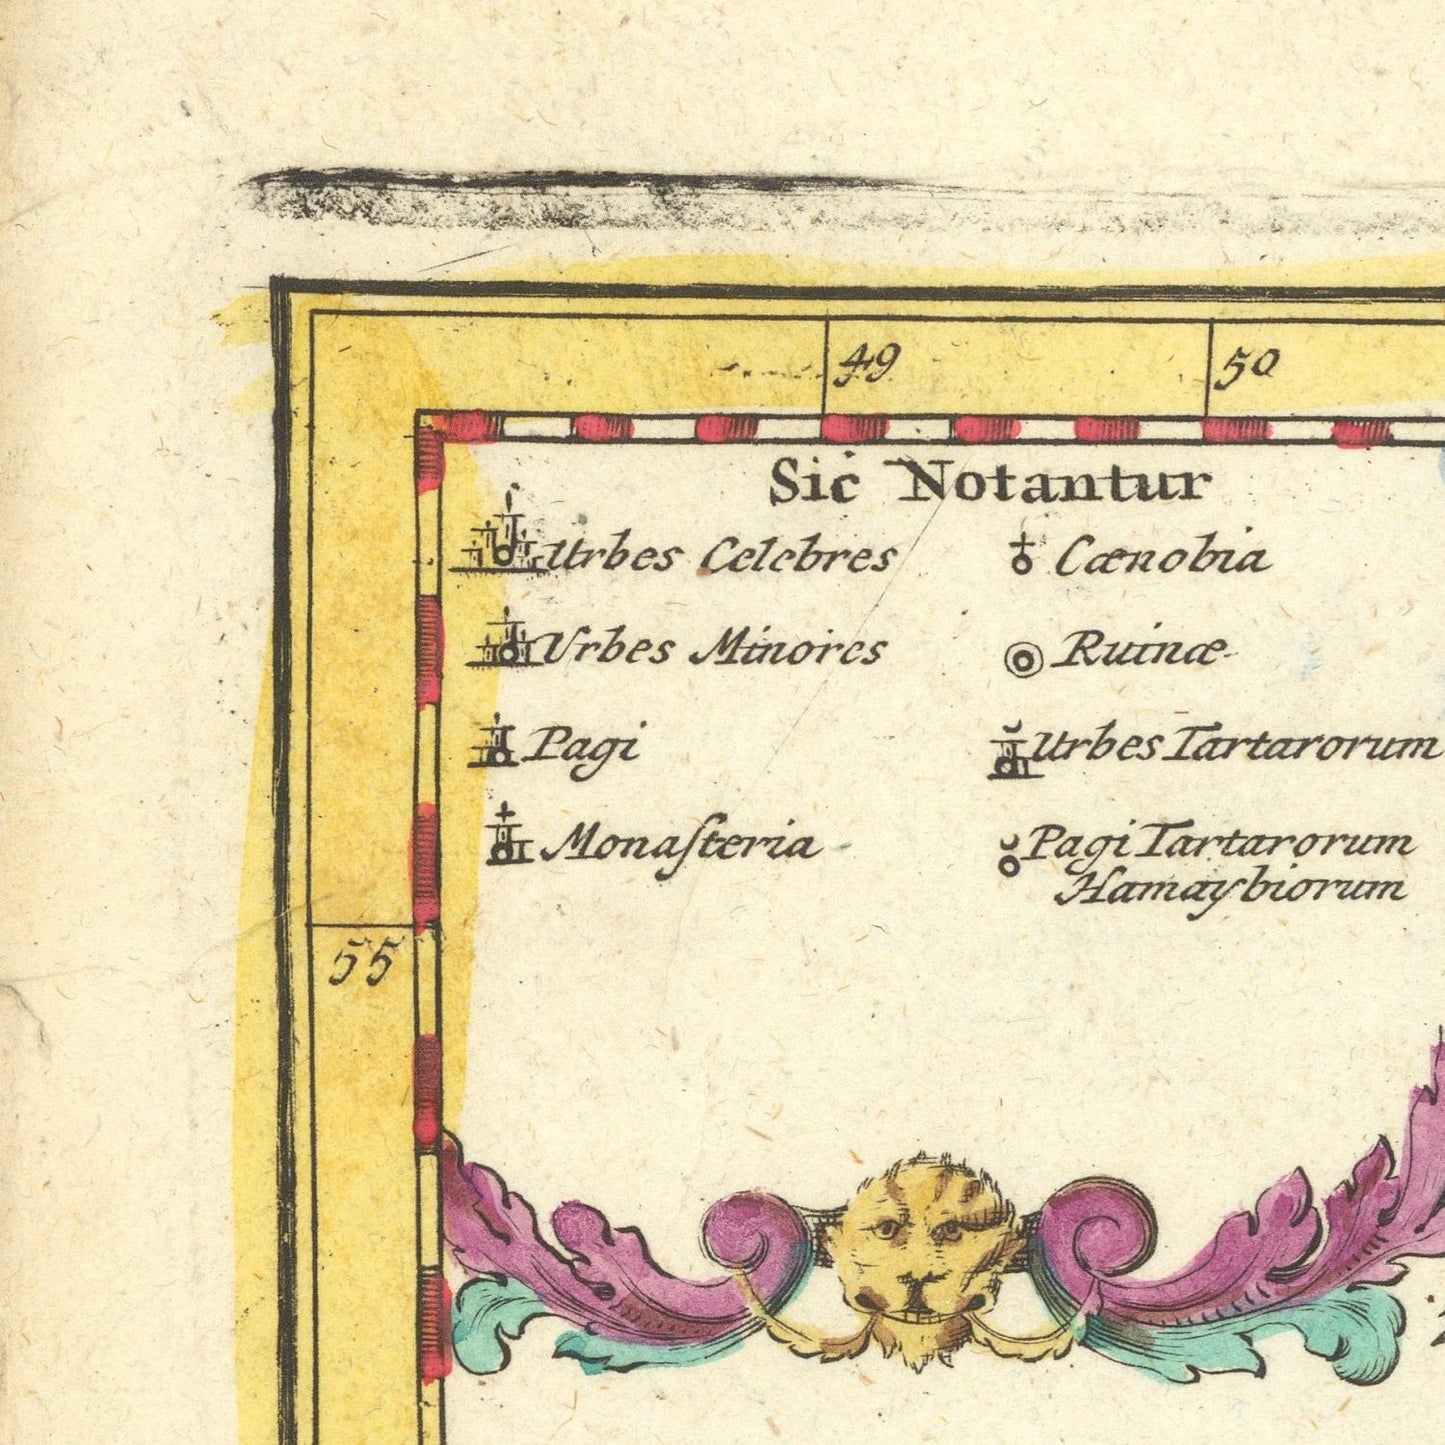 49
50
Sic Notantur
Urbes Celebres
Urbes Minores
Pagi
Monaſteria
Cænobia
Ruinæ
Urbes Tartarorum
Pagi Tartarorum
Hamaybiorum
55